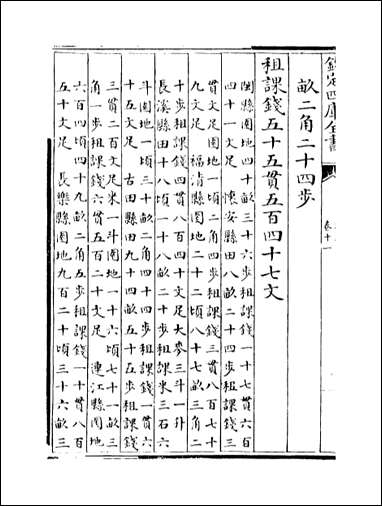 欽定四庫全書
卷十一
畝二角二十四步
租課錢五十五貫五百四十七文
閩縣園地四十畝三十六步租課錢一十七貫六百
四十一文足 懷安縣田八畝二十四步租課錢三
貫文足園地一頃二角四步租課錢三貫八百七十
九文足 福清縣園地二十二頃八十七畝三角二
十步租課錢四貫八百四十文足大麥三斗一升
長溪縣田十八頃一十八畝二十步租課米三石六
斗園地一頃三十畝二角四十四步租課錢一貫六
十五文足 古田縣田九十四畝五十五步租課錢
三貫二百文足米一斗園地一十六頃七十一畝三
角一步租課錢六貫五百二十文足 連江縣園地
六百四頃四十九畝二角五步租課錢一十貫八百
五十文足 長樂縣園地九百二十頃三十六畝三